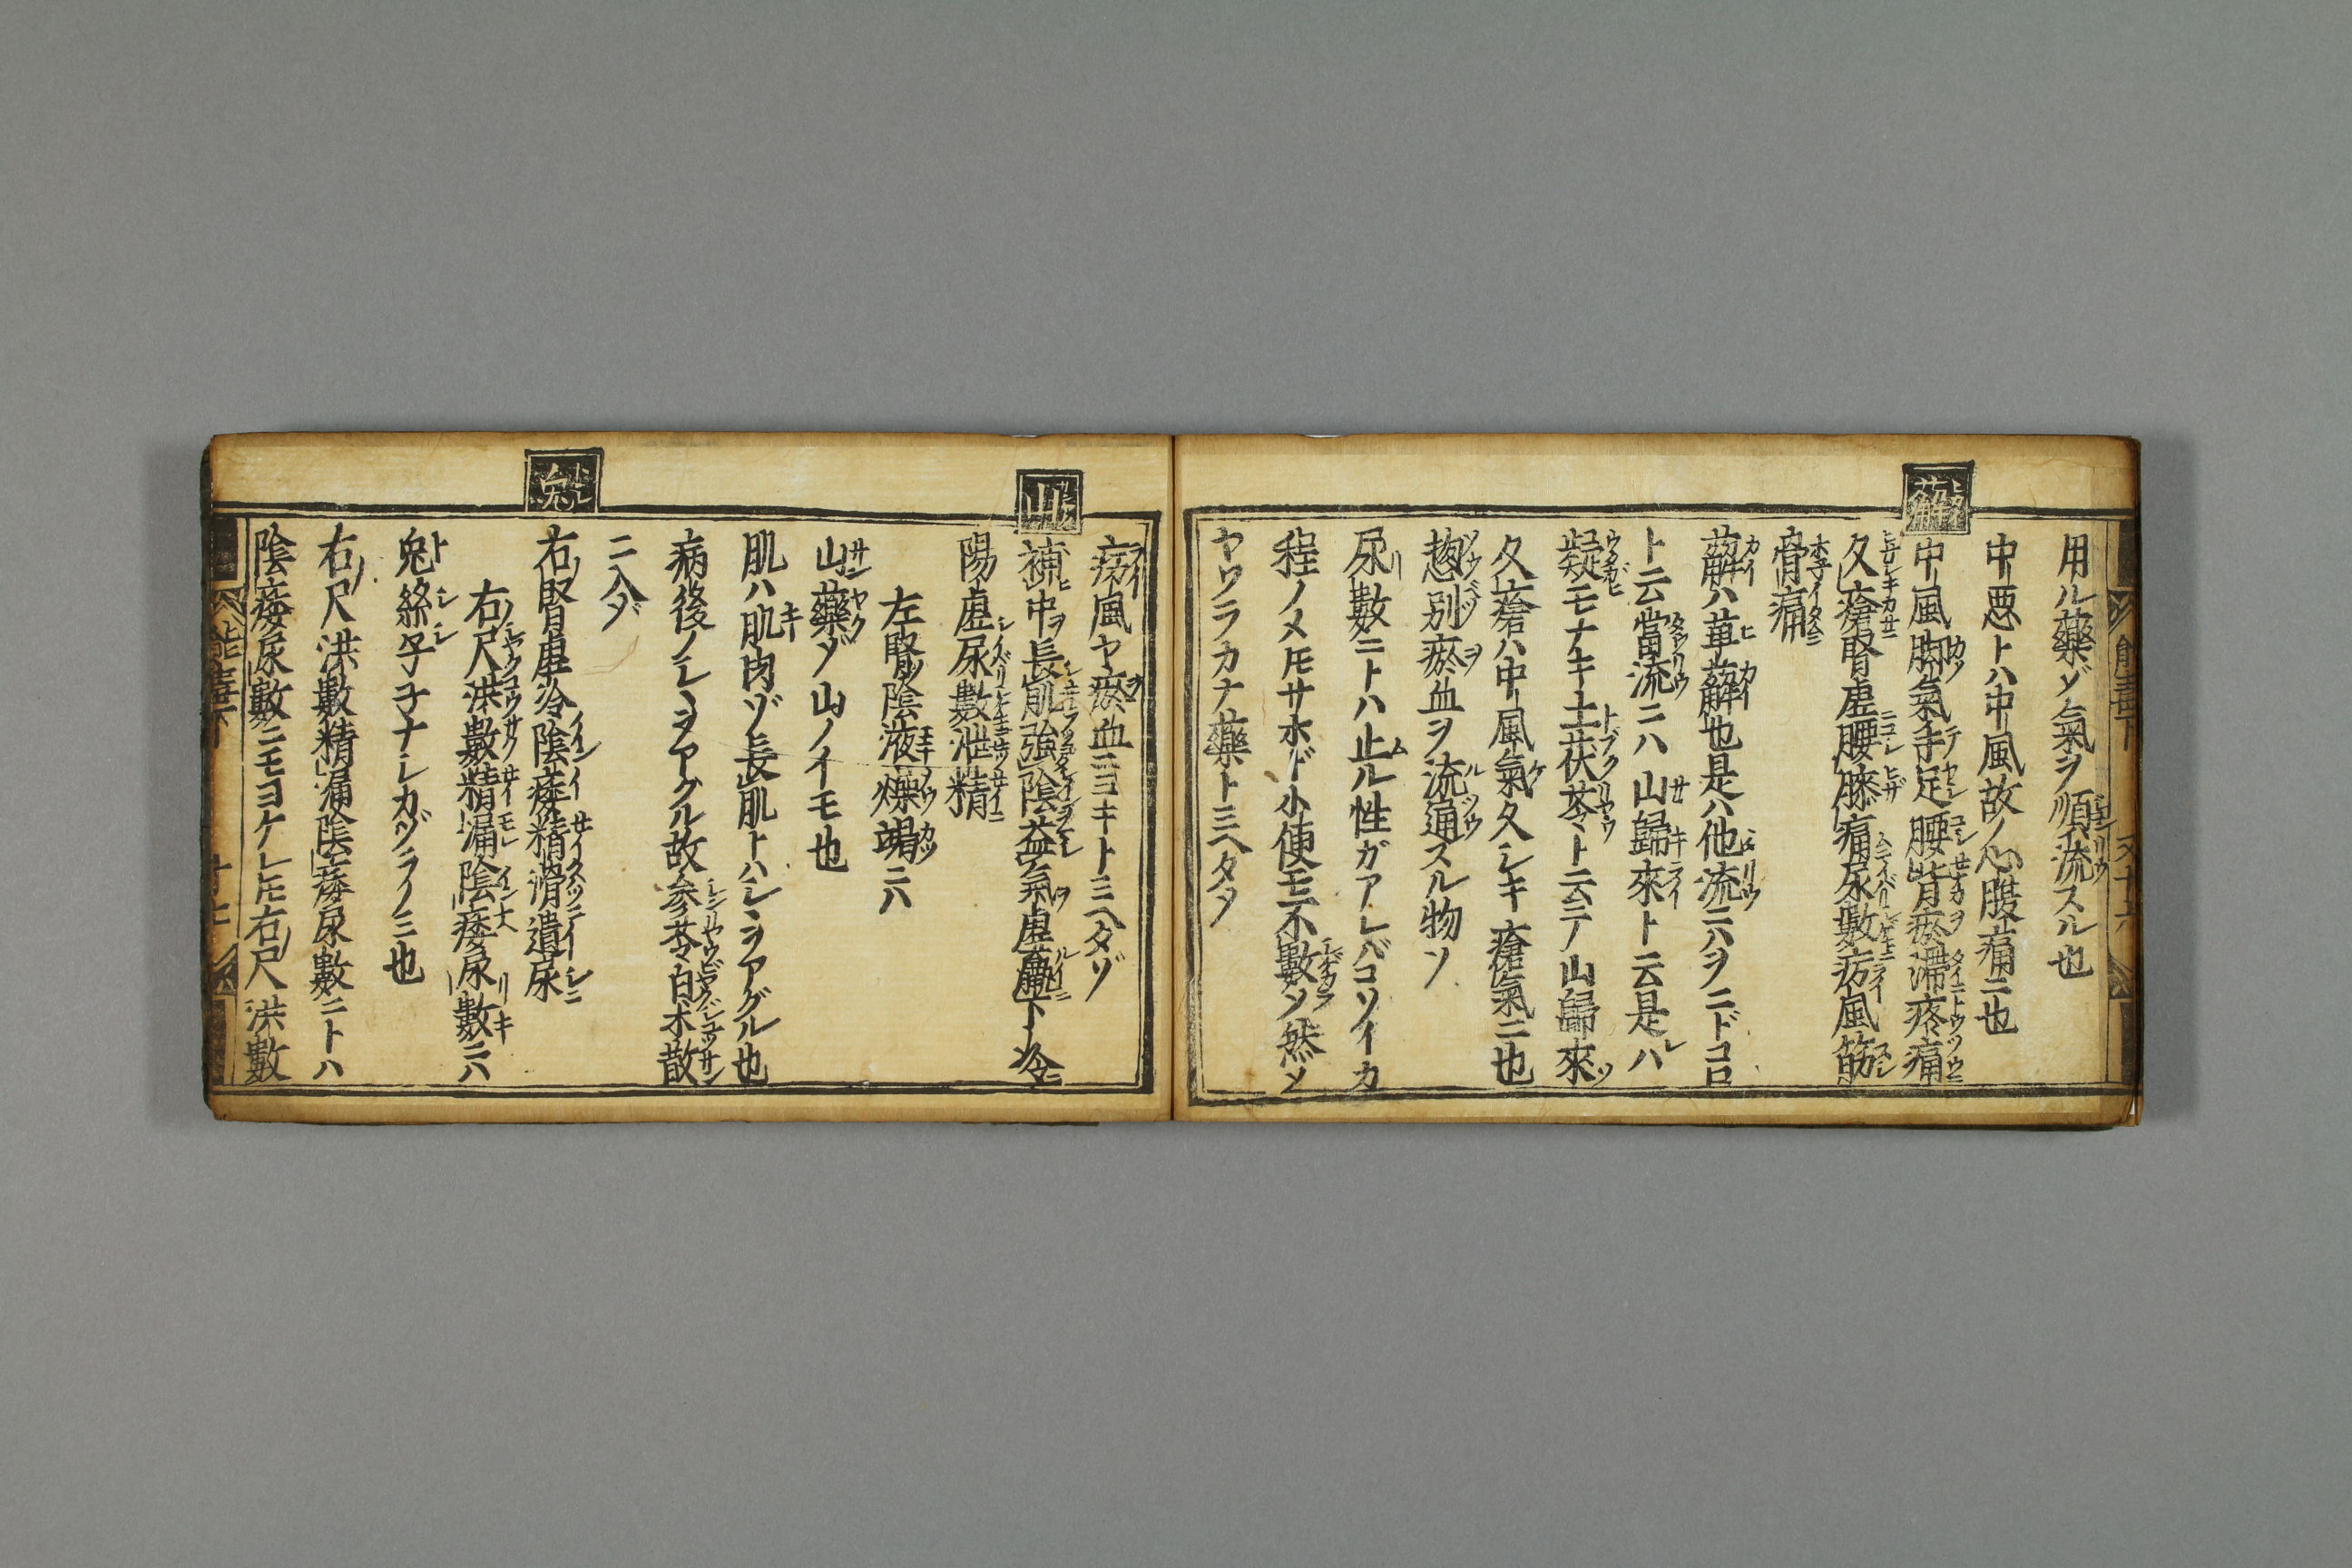 用ル藥ゾ氣ヲ順流スル也
中悪トハ中風故ノ心腹痛ニ也
薢
中風胸氣手足腰背瘀滞疼痛
久瘡腎虚腰膝痛尿數疠風筋
骨痛
薢ハ萆薢也是ハ他流ニハヲニドコロ
ト云當流ニハ山歸來ト云是ハ
疑モナキ土茯苓ト云テ山歸來
久瘡ハ中風氣久シキ瘡氣ニ也
揔別瘀血ヲ流通スル物ソ
尿數ニトハ止ル性ガアレバコソイカ
程ノメ𪜈サホド小便モ不數シ然シ
ヤワラカナ藥ト三ヘタソ
疠風ヤ瘀血ニヨキト三ヘタゾ
山
補中長肌強陰益氣虚羸下冷
陽虚尿數泄精
左腎陰液燥竭ニハ
山藥ゾ山ノイモ也
肌ハ肌肉ゾ長肌トハシヽヲアグル也
病後ノシヽヲアクル故參苓白朮散
ニ入タ
兔
右腎虚冷陰痿精滑遺尿
右尺洪數精漏陰痿尿數ニハ
兔絲子子ナシカヅラノミ也
右尺洪數精漏陰痿尿數ニトハ
陰痿尿數ニモヨケレ𪜈右尺洪數